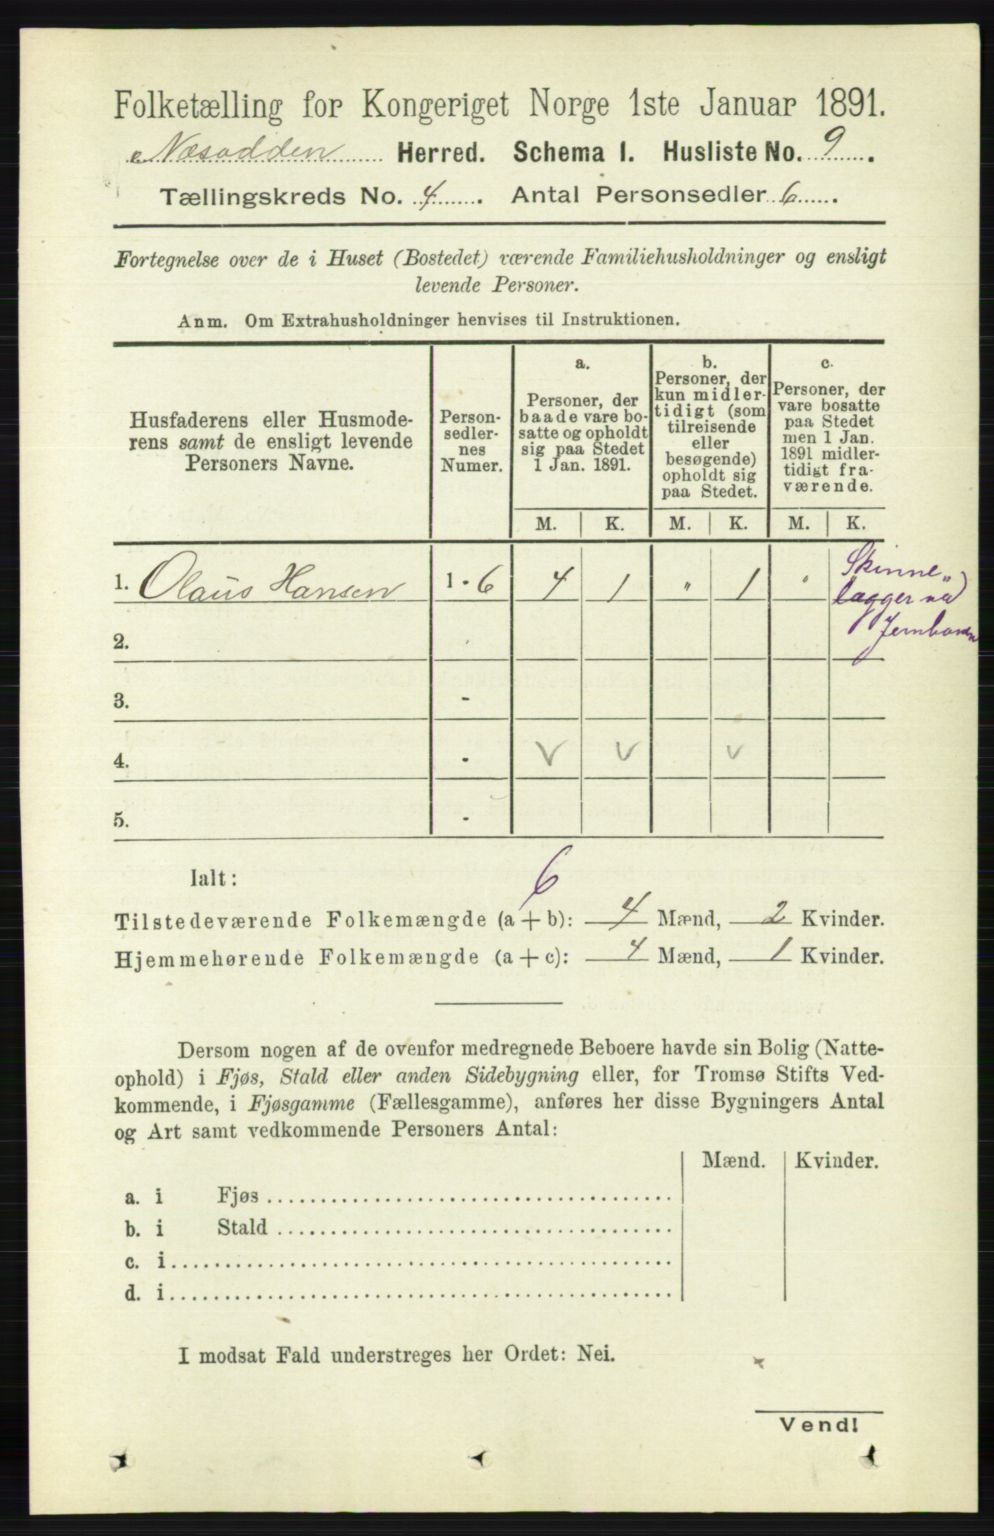 Folketælling for Kongeriget Norge 1ste Januar 1891.
Næsodden Herred. Schema I. Husliste No. 9.
Tællingskreds No. 4. Antal Personsedler 6.
Fortegnelse over de i Huset (Bostedet) værende Familiehusholdninger og ensligt
levende Personer.
Anm. Om Extrahusholdninger henvises til Instruktionen.
Husfaderens eller Husmode-
rens samt de ensligt levende
Personers Navne.
Person-
sedler-
nes
Numer.
a.
Personer, der
baade vare bo-
satte og opholdt
sig paa Stedet
1 Jan. 1891.
b.
Personer, der
kun midler-
tidigt (som
tilreisende
eller
besøgende)
opholdt sig
paa Stedet.
c.
Personer, der
vare bosatte
paa Stedet
men 1 Jan.
1891 midler-
tidigt fra-
værende.
M. K. M. K. M. K.
1. Olaus Hansen 1 - 6 4 1 " 1 " "
Skinne
lægger ved
Jernbanen
2.
3. -
4. - V V V
5. -
Ialt:
6
Tilstedeværende Folkemængde (a + b): 4 Mænd, 2 Kvinder.
Hjemmehørende Folkemængde (a + c): 4 Mænd, 1 Kvinder.
Dersom nogen af de ovenfor medregnede Beboere havde sin Bolig (Natte-
ophold) i Fjøs, Stald eller anden Sidebygning eller, for Tromsø Stifts Ved-
kommende, i Fjøsgamme (Fællesgamme), anføres her disse Bygningers Antal
og Art samt vedkommende Personers Antal:
Mænd. Kvinder.
a. i Fjøs
b. i Stald
c. i
d. i
I modsat Fald understreges her Ordet: Nei.
Vend!